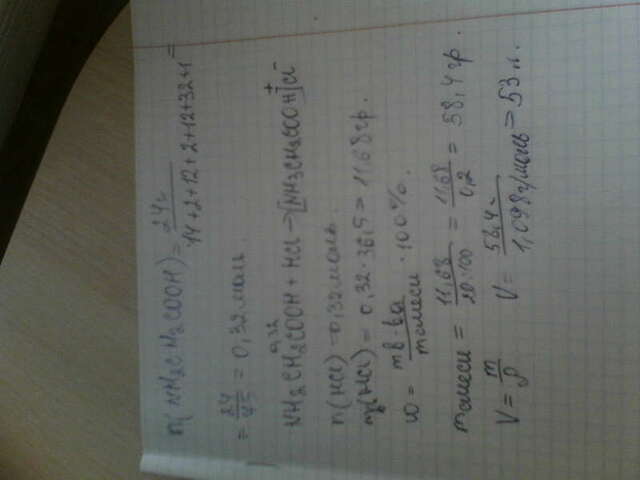 n(NH2CH2COOH) = 24г / 14+2+12+2+12+32+1 =
= 24/75 = 0,32 моль
0,32
NH2CH2COOH + HCl → [NH3CH2COOH]+Cl-
n(HCl) = 0,32 моль.
m(HCl) = 0,32·36,5 = 11,68 гр.
ω = m в ва / m смеси · 100%.
m смеси = 11,68 / 20:100 = 11,68 / 0,2 = 58,4 гр.
V = m/ρ V = 58,4г / 1,098г/моль = 53 л.